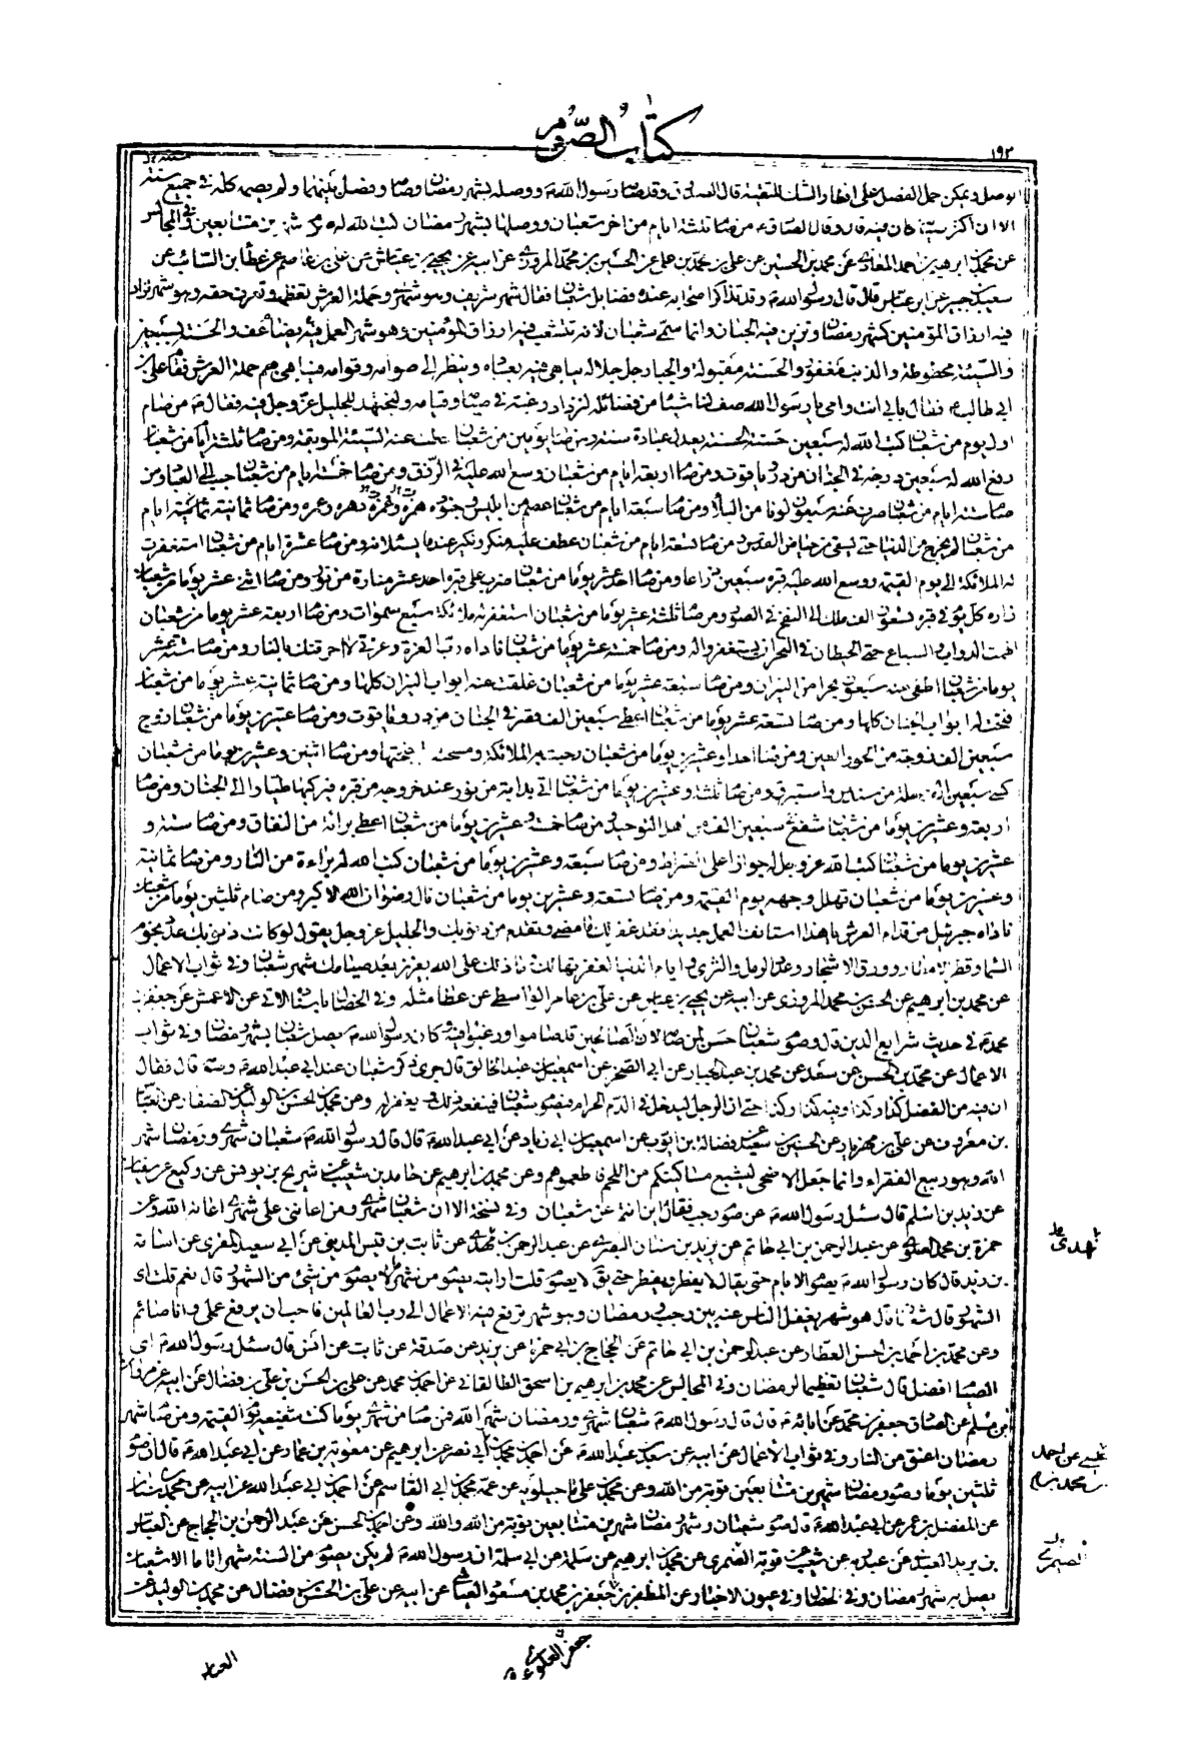 كتاب الصوم
١٩٢
الوصل ويمكن حمل الفصل على افطار والشك للتقية قال الصدوق وقد صام رسول الله ص ووصله بشهر رمضان وصام وفصل بينهما ولم يصمه كله في جميع سنته
الا ان اكثر صيامه كان فيه قال وقال الصادق ع من صام ثلثة ايام من اخر شعبان ووصلها بشهر رمضان كتب الله له صوم شهرين متتابعين وفي المجالس
عن محمد بن ابرهيم بن احمد المعاذي عن محمد بن الحسين عن علي بن محمد بن علي عن الحسين بن محمد المروزي عن ابيه عن يحيى بن عياش عن علي بن عاصم عن عطا بن السائب عن
سعيد بن جبير عن ابن عباس قال قال رسول الله ص وقد تذاكر اصحابه عنده فضايل شعبان فقال شهر شريف وهو شهري وحملة العرش تعظمه وتعرف حقه وهو شهر تزاد
فيه ارزاق المؤمنين كشهر رمضان وتزين فيه الجنان وانما سمي شعبان لانه تتشعب فيه ارزاق المؤمنين وهو شهر العمل فيه يضاعف والحسنة بسبعين
والسيئة محطوطة والذنب مغفور والحسنة مقبولة والجبار جل جلاله يباهي فيه بعباده وينظر الى صوامه وقوامه فيباهي بهم حملة العرش فقام علي بن
ابي طالب ع فقال بابي انت وامي يا رسول الله صف لنا شيئا من فضائله لنزداد رغبة في صيامه وقيامه ولنجتهد للجليل عز وجل فيه فقال ص من صام
اول يوم من شعبان كتب الله له سبعين حسنة الحسنة تعدل عبادة سنة ومن صام يومين من شعبان حطت عنه السيئة الموبقة ومن صام ثلثة ايام من شعبان
رفع الله له سبعين درجة في الجنان من در وياقوت ومن صام اربعة ايام من شعبان وسع الله عليه في الرزق ومن صام خمسة ايام من شعبان حبب الى العباد ومن
صام ستة ايام من شعبان صرف عنه سبعون لونا من البلاء ومن صام سبعة ايام من شعبان عصم من ابليس وجنوده همزه وغمزه دهره وعمره ومن صام ثمانية ايام
من شعبان لم يخرج من الدنيا حتى يسقى من حياض القدس ومن صام تسعة ايام من شعبان عطف عليه منكر ونكير عندما يسئلانه ومن صام عشرة ايام من شعبان استغفرت
له الملائكة الى يوم القيمة ووسع الله عليه قبره سبعين ذراعا ومن صام احد عشر يوما من شعبان ضرب على قبره احد عشر منارة من نور ومن صام اثنى عشر يوما من شعبان
زاره كل يوم في قبره تسعون الف ملك الى النفخ في الصور ومن صام ثلثة عشر يوما من شعبان استغفرت له ملائكة سبع سموات ومن صام اربعة عشر يوما من شعبان
الهمت الدواب والسباع حتى الحيتان في البحر ان يستغفروا له ومن صام خمسة عشر يوما من شعبان ناداه رب العزة وعزتي لا احرقتك بالنار ومن صام ستة عشر
يوما من شعبان اطفي عنه سبعون بحرا من النيران ومن صام سبعة عشر يوما من شعبان غلقت عنه ابواب النيران كلها ومن صام ثمانية عشر يوما من شعبان
فتحت له ابواب الجنان كلها ومن صام تسعة عشر يوما من شعبان اعطي سبعين الف قصر في الجنان من در وياقوت ومن صام عشرين يوما من شعبان زوج
سبعين الف زوجة من الحور العين ومن صام احدا وعشرين يوما من شعبان رحبت به الملائكة ومسحته باجنحتها ومن صام اثنين وعشرين يوما من شعبان
كسي سبعين الف حلة من سندس واستبرق ومن صام ثلثة وعشرين يوما من شعبان اتي بدابة من نور عند خروجه من قبره فيركبها طيارا الى الجنان ومن صام
اربعة وعشرين يوما من شعبان شفع في سبعين الف من اهل التوحيد ومن صام خمسة وعشرين يوما من شعبان اعطي براءة من النفاق ومن صام ستة و
عشرين يوما من شعبان كتب الله عز وجل له جوازا على الصراط ومن صام سبعة وعشرين يوما من شعبان كتب الله له براءة من النار ومن صام ثمانية
وعشرين يوما من شعبان تهلل وجهه يوم القيمة ومن صام تسعة وعشرين يوما من شعبان نال رضوان الله الاكبر ومن صام ثلثين يوما من شعبان
ناداه جبرئيل من قدام العرش يا هذا استانف العمل جديدا فقد غفر لك ما مضى وتقدم من ذنوبك والجليل عز وجل يقول لو كانت ذنوبك عدد نجوم
السماء وقطر الامطار وورق الاشجار وعدد الرمل والثرى وايام الدنيا لغفرتها لك وما ذلك على الله بعزيز بعد صيامك شهر شعبان وفي ثواب الاعمال
عن محمد بن ابرهيم عن الحسين بن محمد المروزي عن ابيه عن يحيى بن عياش عن علي بن عاصم الواسطي عن عطا مثله وفي الخصال باسناده الاتي عن الاعمش عن جعفر بن
محمد ع في حديث شرايع الدين قال وصوم شعبان حسن لمن صامه لان الصالحين قد صاموا ورغبوا فيه وكان رسول الله ص يصل شعبان بشهر رمضان وفي ثواب
الاعمال عن محمد بن الحسن عن سعد عن محمد بن عبد الجبار عن ابي الصخر عن اسمعيل بن عبد الخالق قال جرى ذكر شعبان عند ابي عبد الله ع وصومه قال فقال
ان فيه من الفضل كذا وكذا وفيه كذا وكذا حتى ان الرجل ليدخل في الدم الحرام فيصوم شعبان فينفعه ذلك ويغفر له وعن محمد بن الحسن بن الوليد عن الصفار عن العباس
بن معروف عن علي بن مهزيار عن الحسين بن سعيد عن فضالة بن ايوب عن اسمعيل بن ابي زياد عن ابي عبد الله ع قال قال رسول الله ص شعبان شهري ورمضان شهر
الله وهو ربيع الفقراء وانما جعل الاضحى ليشبع مساكينكم من اللحم فاطعموهم وعن محمد بن ابرهيم عن حامد بن شعيب عن شريح بن يونس عن وكيع عن سفيان
عن زيد بن اسلم قال سئل رسول الله ص عن صوم رجب فقال اين انتم عن شعبان وفي نسخة الا ان شعبان شهري ومن اعانني على شهري اعانه الله وعن
حمزة بن محمد العلوي عن عبد الرحمن بن ابي حاتم عن يزيد بن سنان البصري عن عبد الرحمن بن مهدي عن ثابت بن قيس المديني عن ابي سعيد المقري عن اسامة
بن زيد قال كان رسول الله ص يصوم الايام حتى يقال لا يفطر ويفطر حتى يق لا يصوم قلت ارايته يصوم من شهر ما لا يصوم من شئ من الشهور قال نعم قلت اي
الشهور قال شعبان قال هو شهر يغفل الناس عنه بين رجب ورمضان وهو شهر ترفع فيه الاعمال الى رب العالمين فاحب ان يرفع عملي وانا صائم
وعن محمد بن احمد بن الحسن العطار عن عبد الرحمن بن ابي حاتم عن الحجاج بن ابي حمزة عن يزيد عن صدقة عن ثابت عن انس قال سئل رسول الله ص اي
الصيام افضل قال شعبان تعظيما لرمضان وفي المجالس عن محمد بن ابرهيم بن اسحق الطالقاني عن احمد بن محمد عن علي بن الحسن بن علي بن فضال عن ابيه عن مروان
بن مسلم عن الصادق جعفر بن محمد عن ابائه ع قال قال رسول الله ص شعبان شهري ورمضان شهر الله فمن صام من شهري يوما كنت شفيعه يوم القيمة ومن صام شهر
رمضان اعتق من النار وفي ثواب الاعمال عن ابيه عن سعد بن عبد الله عن احمد بن محمد بن ابي نصر عن ابرهيم عن معوية بن عمار عن ابي عبد الله ع قال ان صوم
ثلثين يوما وصوم رمضان شهرين متتابعين توبة من الله وعن محمد بن علي ماجيلويه عن عمه محمد بن ابي القاسم عن احمد بن ابي عبد الله عن ابيه عن محمد بن سنان
عن المفضل بن عمر عن ابي عبد الله ع قال صوم شعبان وشهر رمضان شهرين متتابعين توبة من الله والله وعن احمد بن الحسن عن عبد الرحمن بن الحجاج عن العباس
بن يزيد العبدي عن شعبة عن توبة العنبري عن محمد بن ابرهيم عن سلمة عن ابي سلمة ان رسول الله ص لم يكن يصوم من السنة شهرا تاما الا شعبان
يصل به شهر رمضان وفي الخصال وفي عيون الاخبار عن المظفر بن جعفر بن محمد بن مسعود العياشي عن ابيه عن علي بن الحسن بن فضال عن محمد بن الوليد عن
مهدي
محمد بن
جعفر العلوي
العباس